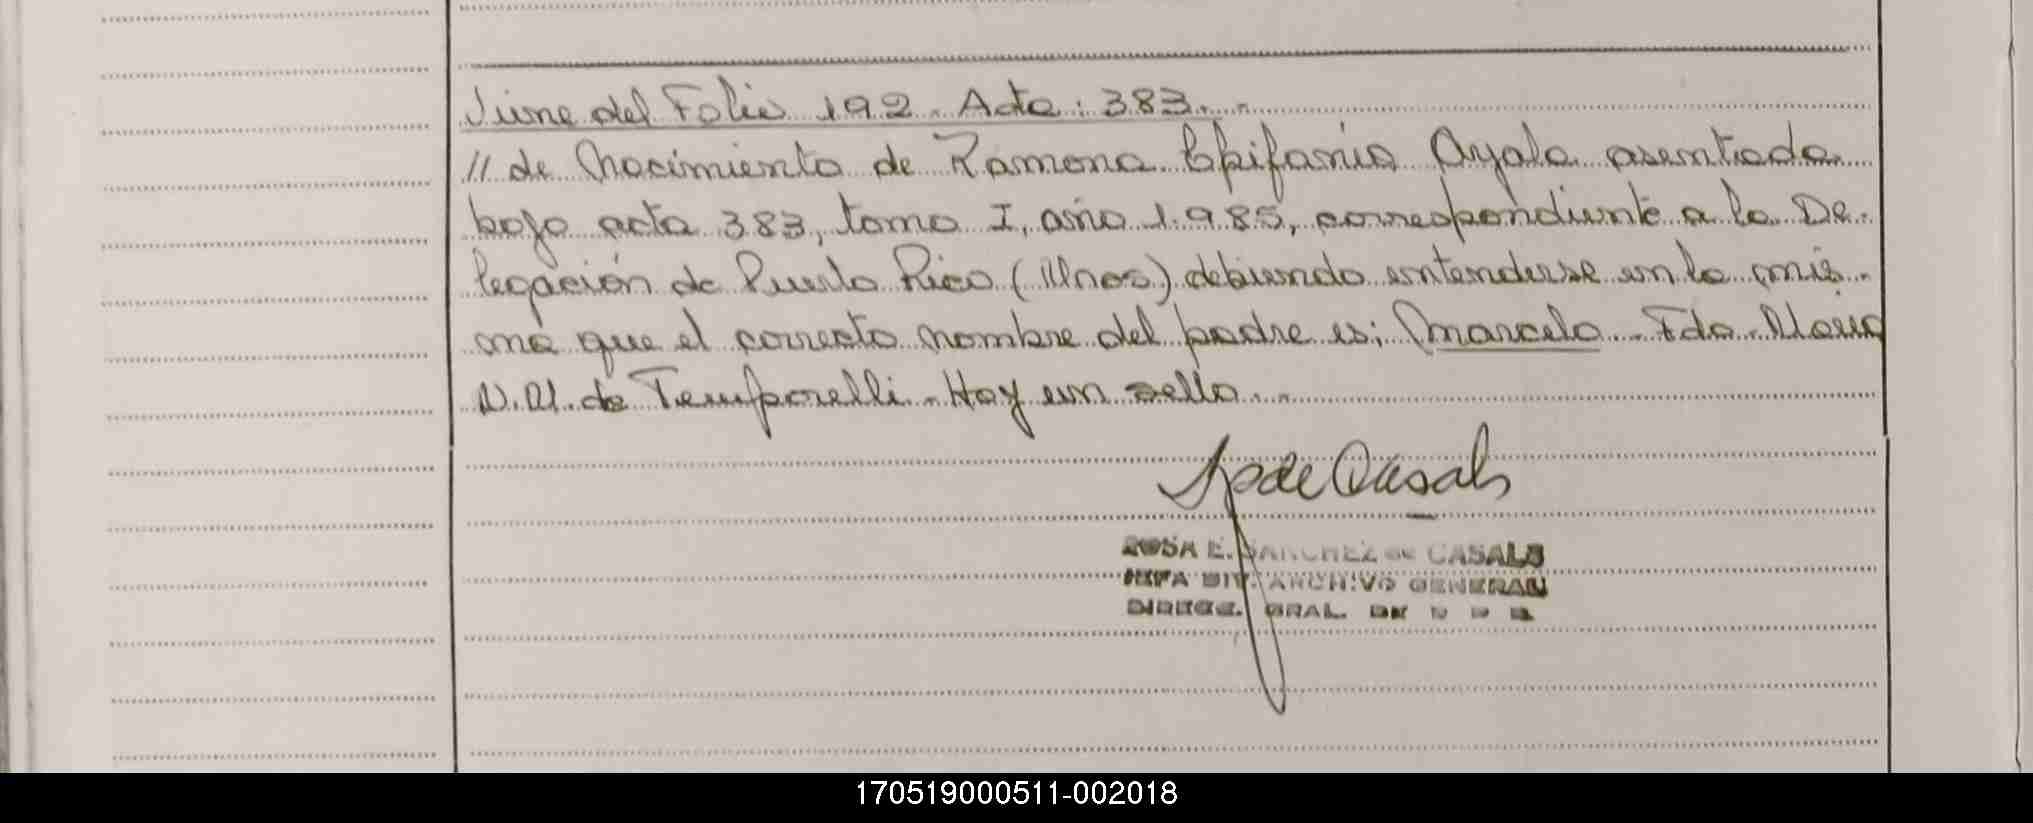 Viene del Folio 192. Acta: 383. -
// de Nacimiento de Ramona Epifania Ayala asentada
bajo acta 383, tomo I, año 1.985, correspondiente a la De-
legación de Puerto Rico (Mnes) debiendo entenderse en la mis-
ma que el correcto nombre del padre es: Marcelo - Fdo - María
N. M. de Temporelli. Hay un sello. -
ROSA E. SANCHEZ de CASALS
JEFA DIV. ARCHIVO GENERAL
DIRECC. GRAL. DE R P P
170519000511-002018